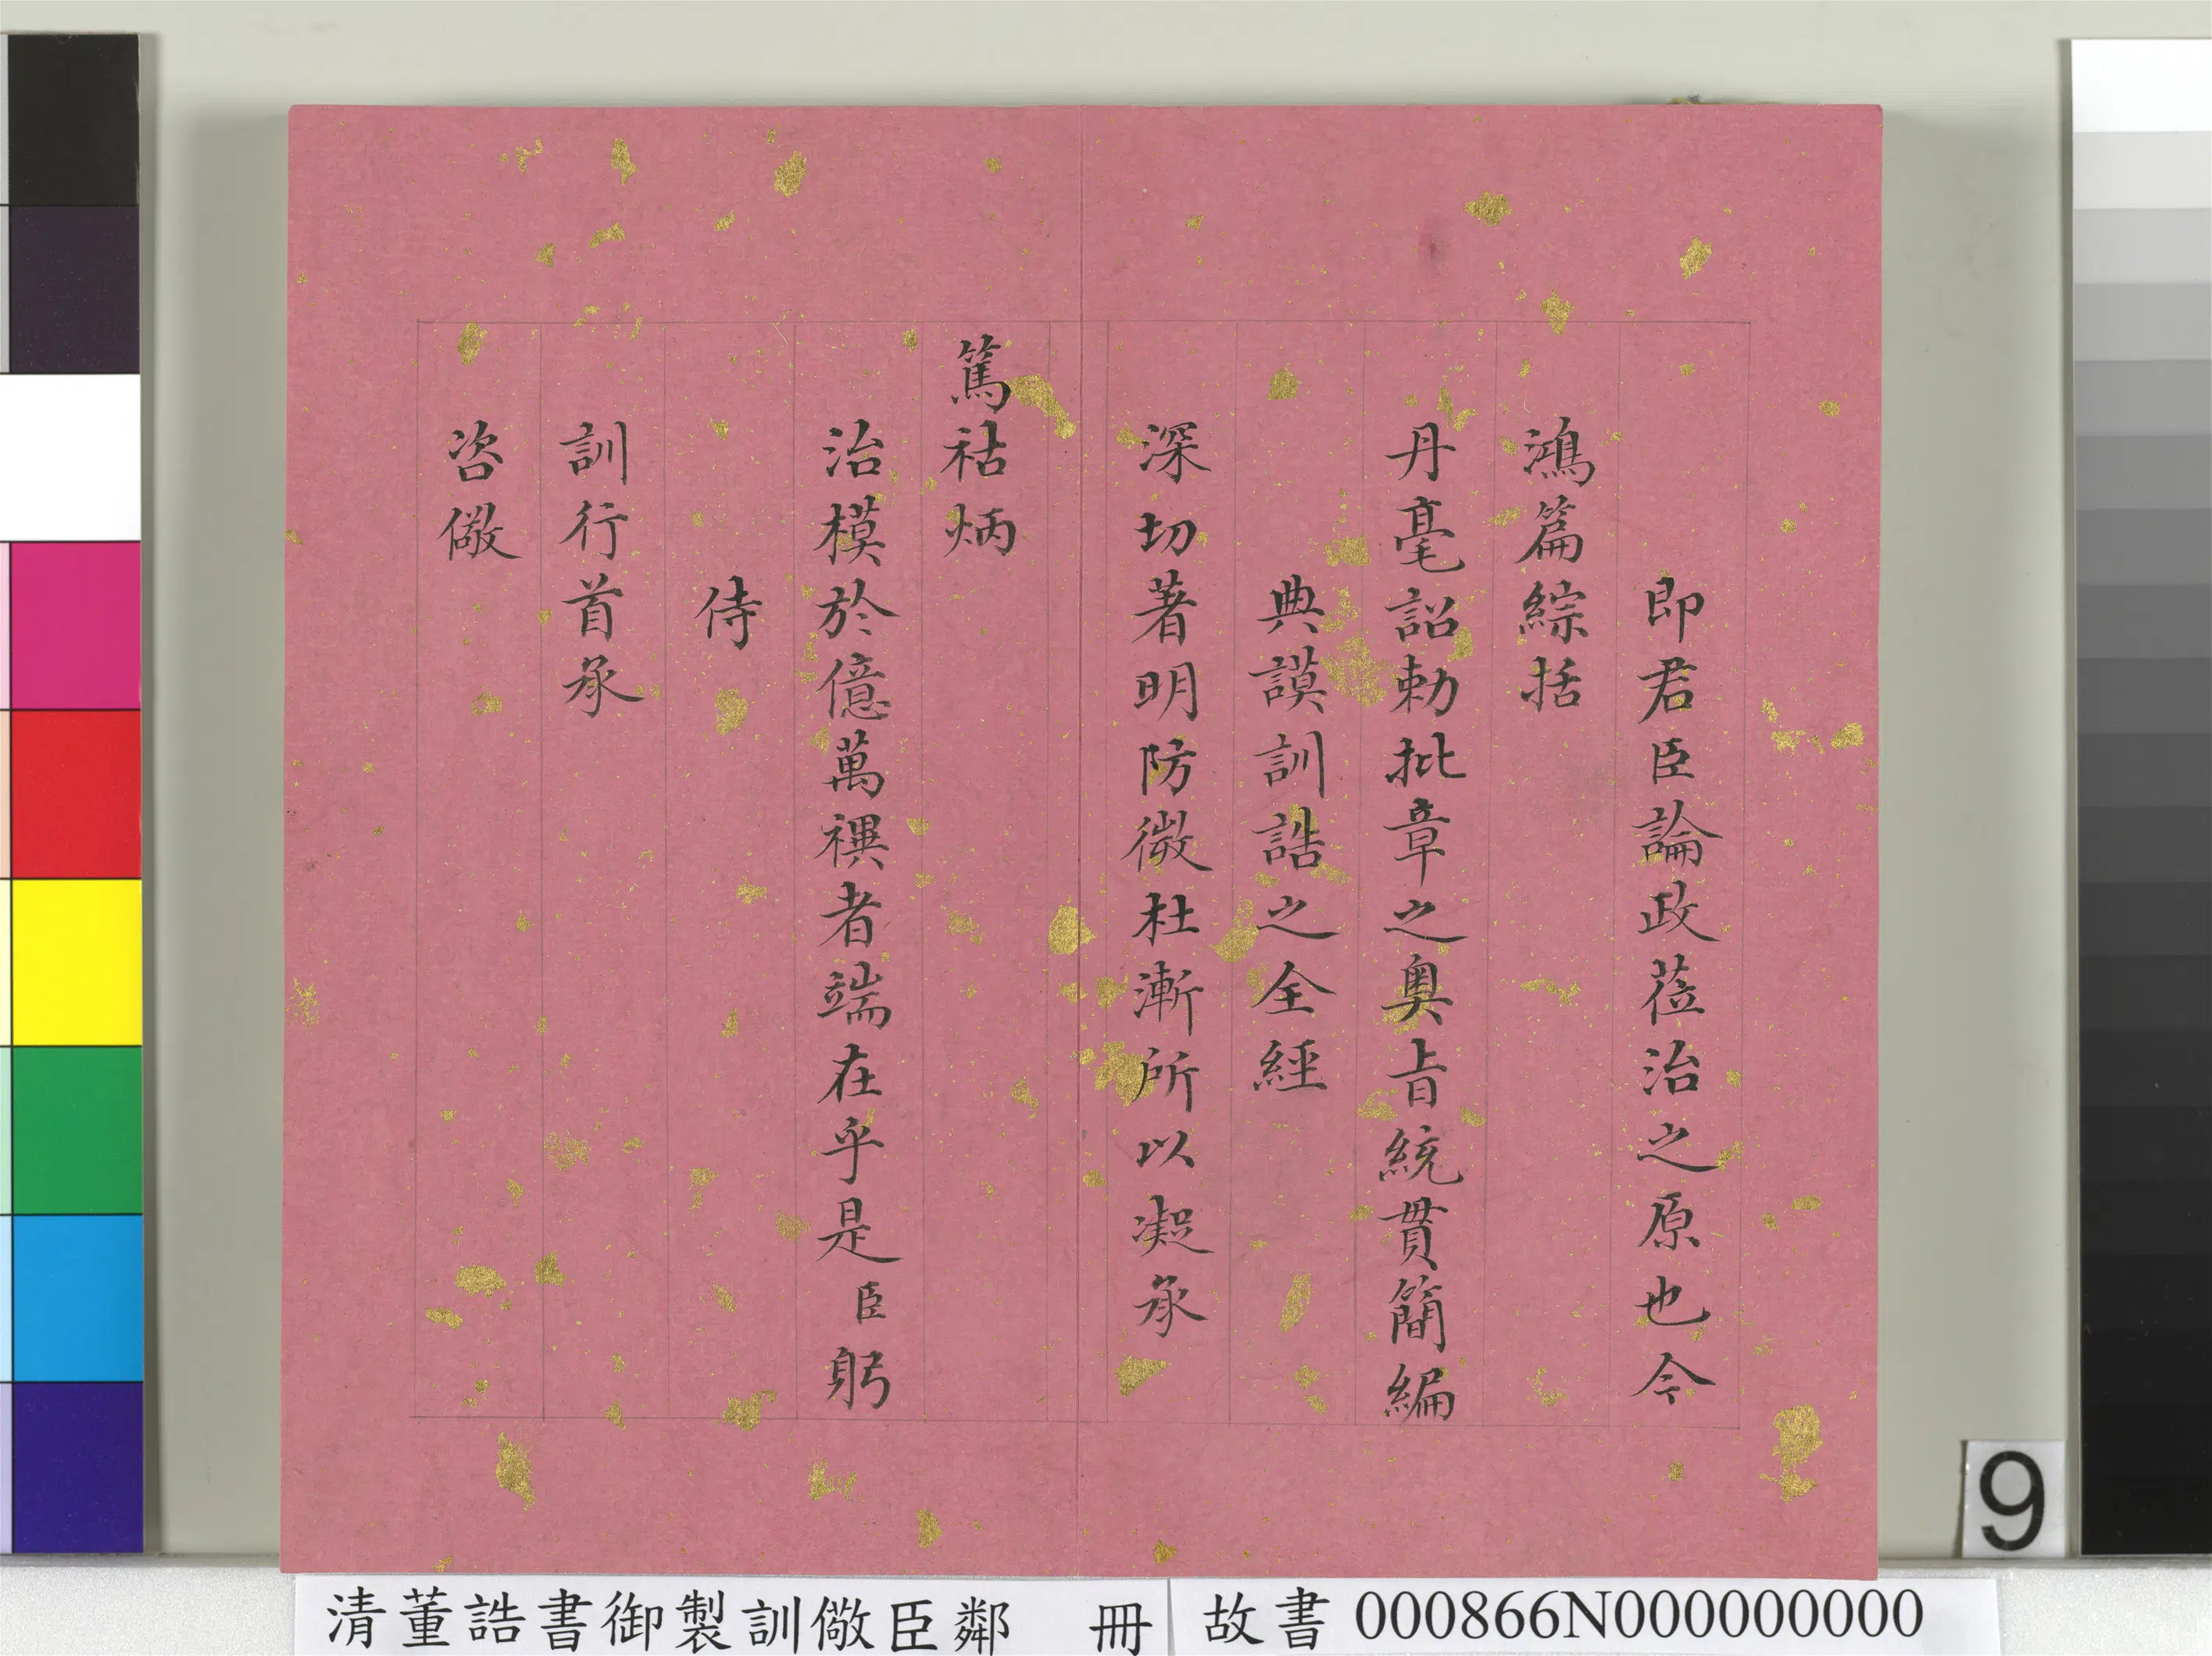 即君臣論政蒞治之原也今
鴻篇綜括
丹毫詔勅批章之奧旨統貫簡編
典謨訓誥之全經
深切著明防微杜漸所以凝承
篤祜炳
治模於億萬禩者端在乎是臣躬
侍
訓行首承
咨儆
清董誥書御製訓儆臣鄰 冊
故書 000866N000000000
9